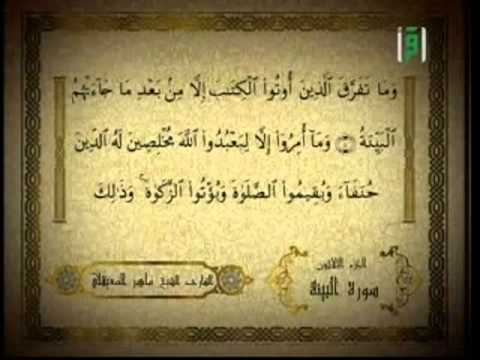 اقرأ
وَمَا تَفَرَّقَ ٱلَّذِينَ أُوتُوا۟ ٱلْكِتَٰبَ إِلَّا مِنۢ بَعْدِ مَا جَآءَتْهُمُ
ٱلْبَيِّنَةُ ۝٤ وَمَآ أُمِرُوٓا۟ إِلَّا لِيَعْبُدُوا۟ ٱللَّهَ مُخْلِصِينَ لَهُ ٱلدِّينَ
حُنَفَآءَ وَيُقِيمُوا۟ ٱلصَّلَوٰةَ وَيُؤْتُوا۟ ٱلزَّكَوٰةَ ۚ وَذَٰلِكَ
الجزء الثلاثون
سورة البينة
القارئ الشيخ ماهر المعيقلي